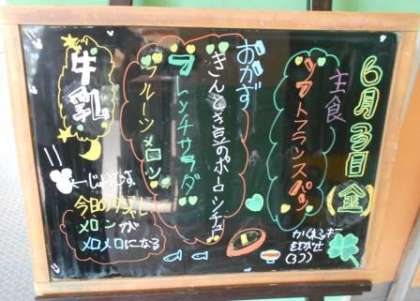 6月3日(金)
主食
ソフトフランスパン
おかず
きんとき豆のポークシチュー
フレンチサラダ
フルーツメロン
牛乳
今日の
メロンが
メロメロになる